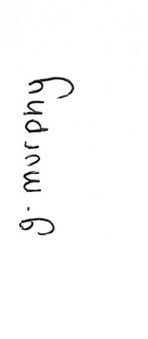 g. murphy